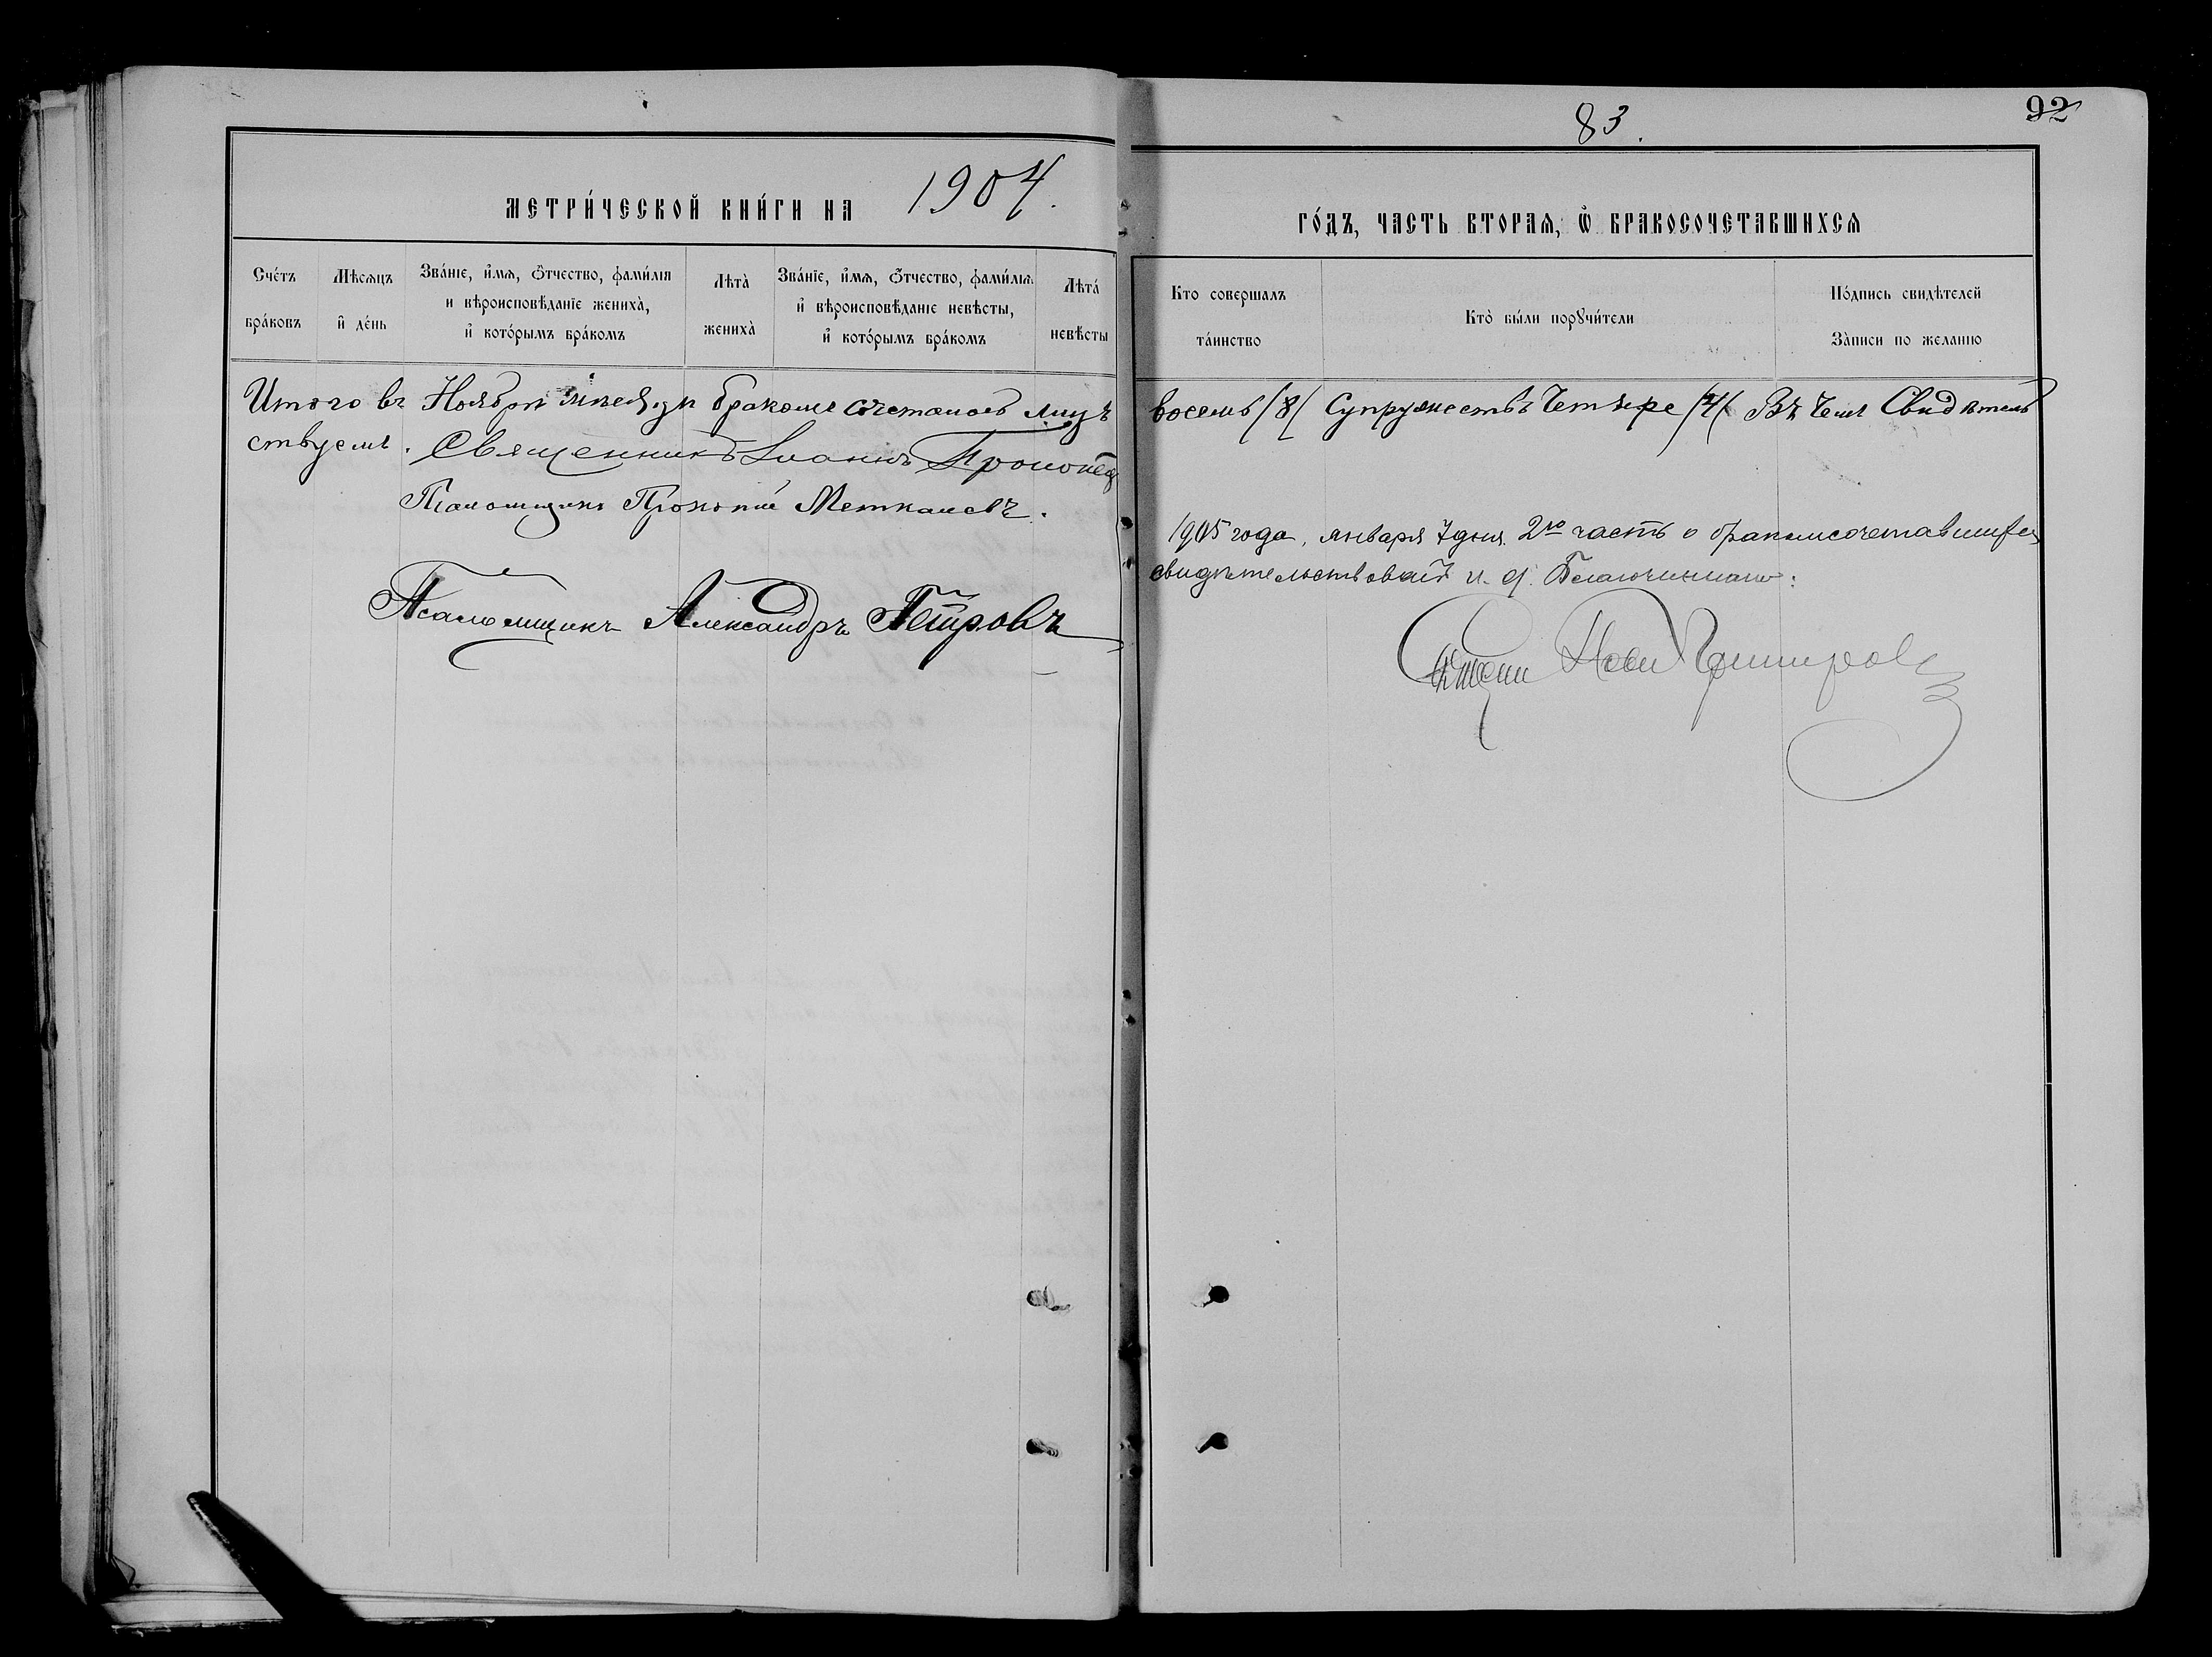 83.
92
МЕТРИ́ЧЕСКОЙ КНИ́ГИ НА 1904.
ГО́ДЪ, ЧАСТЬ ВТОРАѦ, Ѽ БРАКОСОЧЕТАВШИХСѦ
Сче́тъ бра́ковъ
Мѣсѧцъ и҆ де́нь
Зва́нїе, и҆́мѧ, ѻ҆́тчество, фами́лїѧ и вѣроисповѣ́данїе жениха̀, и҆ кото́рымъ бра́комъ
Лѣта̀ жениха̀
Зва́нїе, и҆́мѧ, ѻ҆́тчество, фами́лїѧ и҆ вѣроисповѣ́данїе невѣ́сты, и҆ кото́рымъ бра́комъ
Лѣта́ невѣ́сты
Кто совершалъ та́инство
Кто̀ бы́ли порꙋчи́тели
По́дпись свидѣ́телей За́писи по желанію
Итого въ Ноябрѣ мѣсяцѣ бракомъ сочеталось лицъ восемь /8/ Супружествъ Четыре /4/ Въ чемъ Свидѣтель
ствуемъ. Священникъ Іоаннъ
Псаломщикъ Прокопій
Псаломщикъ Александръ Петровъ
1905 года, января 7 дня. 2ю часть о бракомсочетавшихся
свидѣтельствовалъ и. д. Благочиннаго: